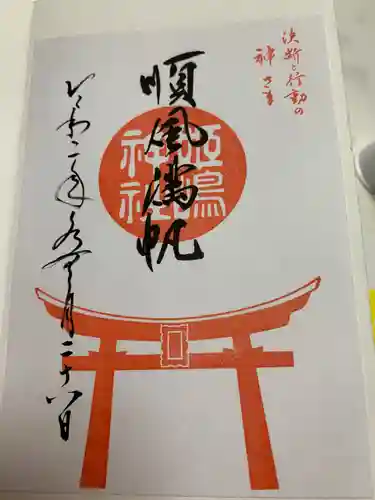 決断と行動の
神さま
順風満帆
姫嶋
神社
令和二年水無月二十八日